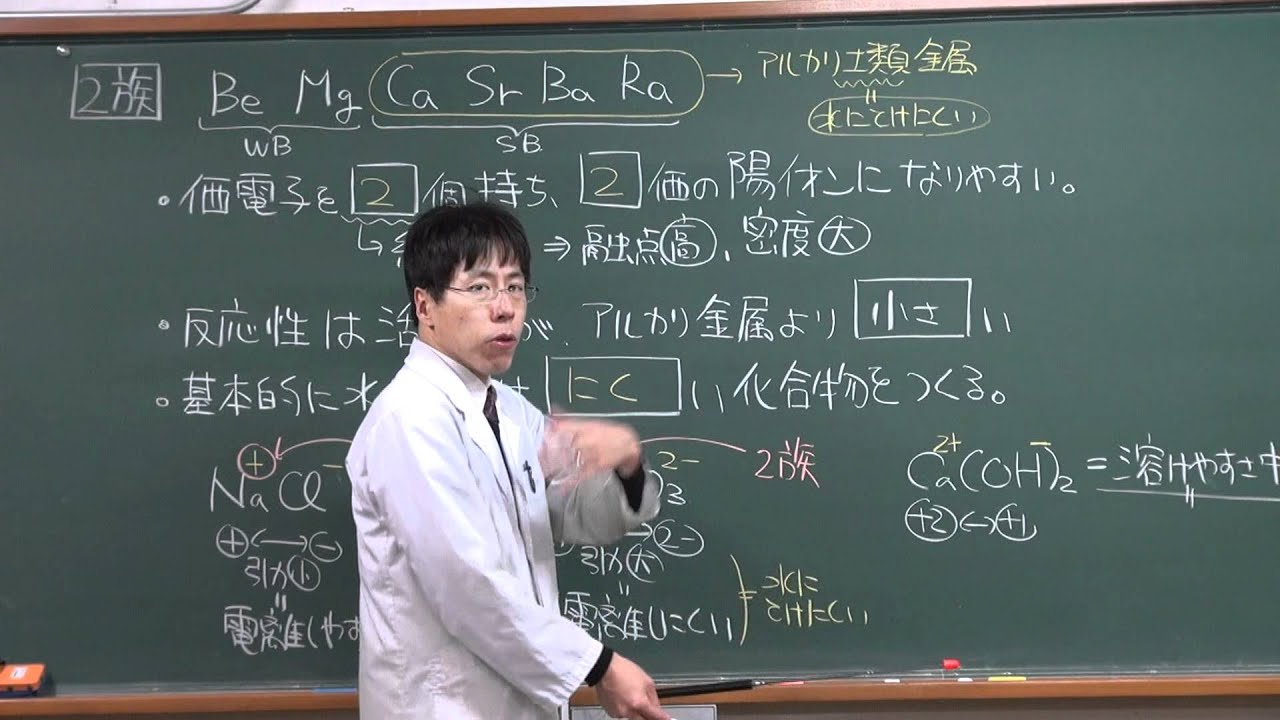 2族 Be Mg Ca Sr Ba Ra → アルカリ土類金属
WB SB 水にとけにくい
・価電子を 2 個持ち、2 価の陽イオンになりやすい。
⇒ 融点高、密度大
・反応性は活 が、アルカリ金属より 小さ い
・基本的に水 にく い化合物をつくる。
+ − 2− 2族 2+ −
NaCl 3 Ca(OH)2 = 溶けやすさ中
+ ↔ − 2− +2 ↔ +1
引力小 引力大
電離しやす 電離しにくい = 水にとけにくい